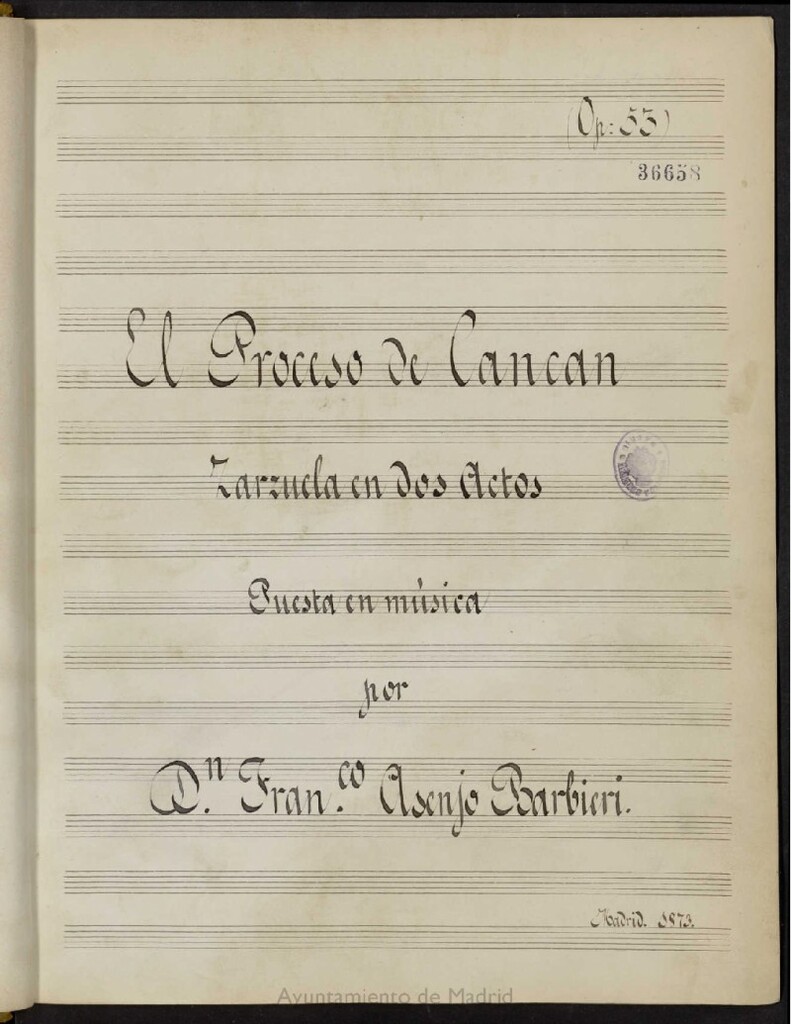 (Op: 53)
36658
El Proceso de Cancan
Zarzuela en dos Actos
Puesta en música
por
D.n Fran.co Asenjo Barbieri.
Madrid. 1873.
Ayuntamiento de Madrid